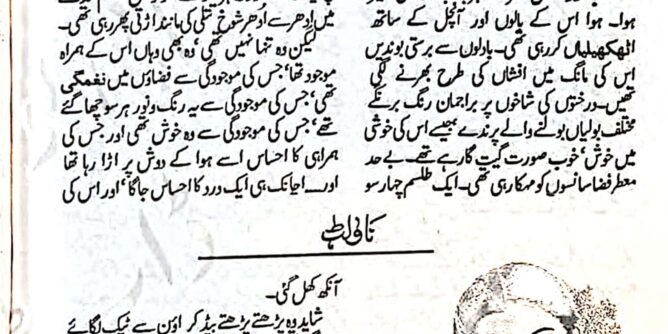 ہوا۔ ہوا اس کے بالوں اور آنچل کے ساتھ
اٹھکھیلیاں کر رہی تھی۔ بادلوں سے برستی بوندیں
اس کی مانگ میں افشاں کی طرح بھرنے لگی
تھیں۔ درختوں کی شاخوں پر براجمان رنگ برنگے
مختلف بولیاں بولنے والے پرندے جیسے اس کی خوشی
میں خوش، خوب صورت گیت گا رہے تھے۔ بے حد
معطر فضا سانسوں کو مہکا رہی تھی۔ ایک طلسم چہار سو
میں ادھر سے ادھر شوخ تتلی کی مانند اڑتی پھر رہی تھی۔
لیکن وہ تنہا نہیں تھی، وہ بھی وہاں اس کے ہمراہ
موجود تھا، جس کی موجودگی سے فضاؤں میں نغمگی
تھی، جس کی موجودگی سے یہ رنگ و نور ہر سو چھا گئے
تھے، جس کی موجودگی سے وہ خوش تھی اور جس کی
ہمراہی کا احساس اسے ہوا کے دوش پر اڑا رہا تھا
اور۔۔۔ اچانک ہی ایک درد کا احساس جاگا، اور اس کی
ناولٹ
آنکھ کھل گئی۔
شاید وہ پڑھتے پڑھتے بیڈ کراؤن سے ٹیک لگائے